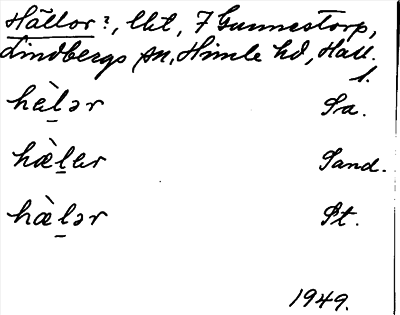 Hällor?, lht, 7 Gunnestorp,
Lindbergs sn, Himle hd, Hall.
l.
hæ̀l̠ər Sa.
hæ̀l̠er Sand.
hæ̀l̠ər St.
1949.